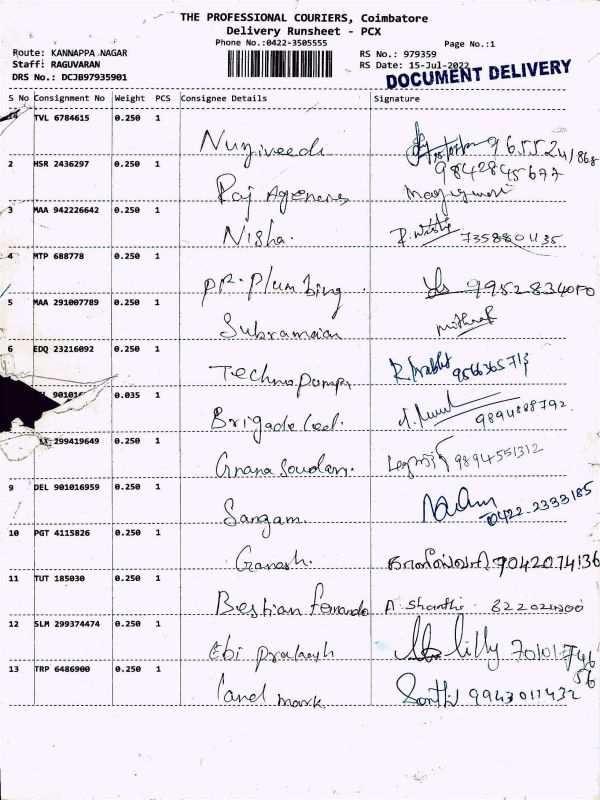 THE PROFESSIONAL COURIERS, Coimbatore
Delivery Runsheet - PCX
Phone No.:0422-3505555
Page No.:1
Route: KANNAPPA NAGAR
Staff: RAGUVARAN
DRS No.: DCJB97935901
RS No.: 979359
RS Date: 15-Jul-2022
DOCUMENT DELIVERY
S No Consignment No Weight PCS Consignee Details Signature
TVL 6784615 0.250 1
Nuziveedu
2 HSR 2436297 0.250 1
9842845677
Raj Agencies
3 MAA 942226642 0.250 1
Nisha. 7358801135
4 MTP 688778 0.250 1
PR. Plumbing
5 MAA 291007789 0.250 1
Subramaian
6 EDQ 23216092 0.250 1
Techno pumps R. Prabhu 9566365713
901016 0.035 1
Brigade 9894808792
299419649 0.250 1
Gnana Soudary. 9894551312
9 DEL 901016959 0.250 1
Sangam. 0422-2333185
10 PGT 4115826 0.250 1
Ganesh. 7042074136
11 TUT 185030 0.250 1
Bestian Fernando A. Shanthi
12 SLM 299374474 0.250 1
Ebi prakash lilly
13 TRP 6486900 0.250 1
land mark 9943011432